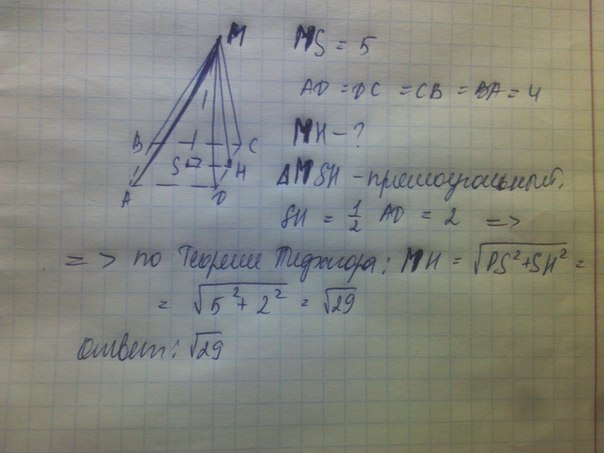 M
B
C
S
H
A
D
MS = 5
AD = DC = CB = BA = 4
MH - ?
Δ MSH - прямоугольный.
SH = 1/2 AD = 2 =>
=> по Теореме Пифагора: MH = √PS²+SH² =
= √5²+2² = √29
ответ: √29